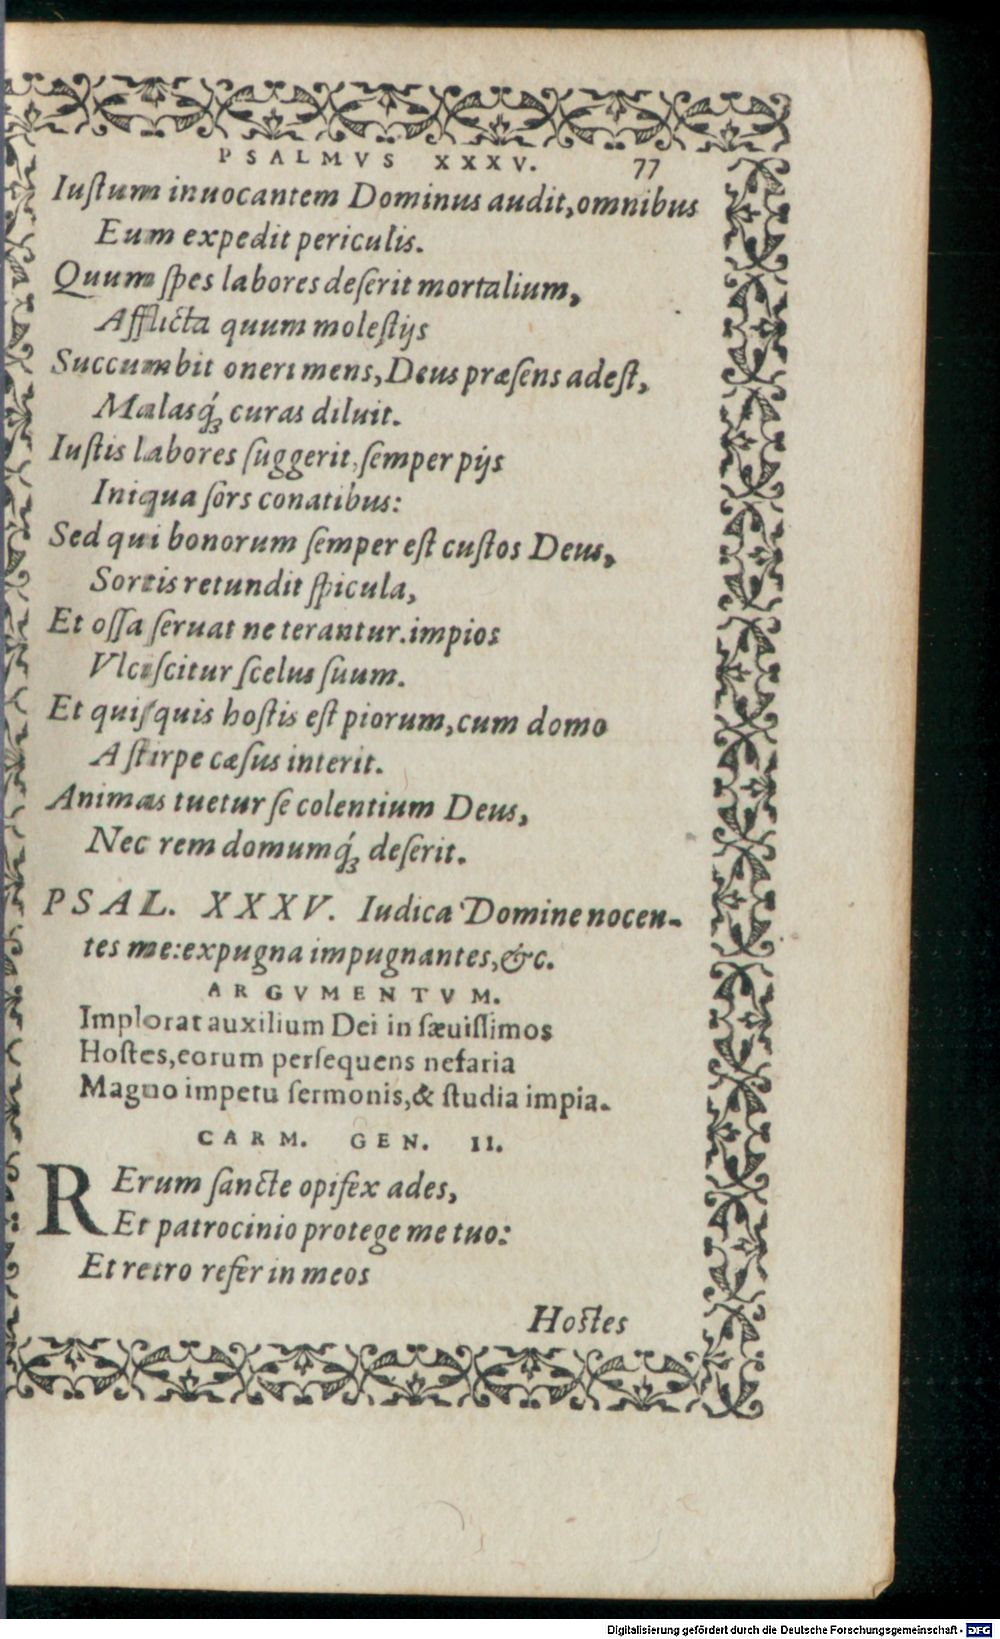 PSALMVS XXXV. 77
Iuſtum inuocantem Dominus audit, omnibus
Eum expedit periculis.
Quum ſpes labores deſerit mortalium,
Afflicta quum moleſtijs
Succumbit oneri mens, Deus præſens adeſt,
Malasq́; curas diluit.
Iuſtis labores ſuggerit, ſemper pijs
Iniqua ſors conatibus:
Sed qui bonorum ſemper eſt cuſtos Deus,
Sortis retundit ſpicula,
Et oſſa ſeruat ne terantur. impios
Vlciſcitur ſcelus ſuum.
Et quiſquis hoſtis eſt piorum, cum domo
A ſtirpe cæſus interit.
Animas tuetur ſe colentium Deus,
Nec rem domumq́; deſerit.
PSAL. XXXV. Iudica Domine nocen-
tes me: expugna impugnantes, &c.
ARGVMENTVM.
Implorat auxilium Dei in ſæuiſſimos
Hoſtes, eorum perſequens nefaria
Magno impetu ſermonis, & ſtudia impia.
CARM. GEN. II.
RErum ſancte opifex ades,
Et patrocinio protege me tuo:
Et retro refer in meos
Hoſtes
Digitalisierung gefördert durch die Deutsche Forschungsgemeinschaft - DFG